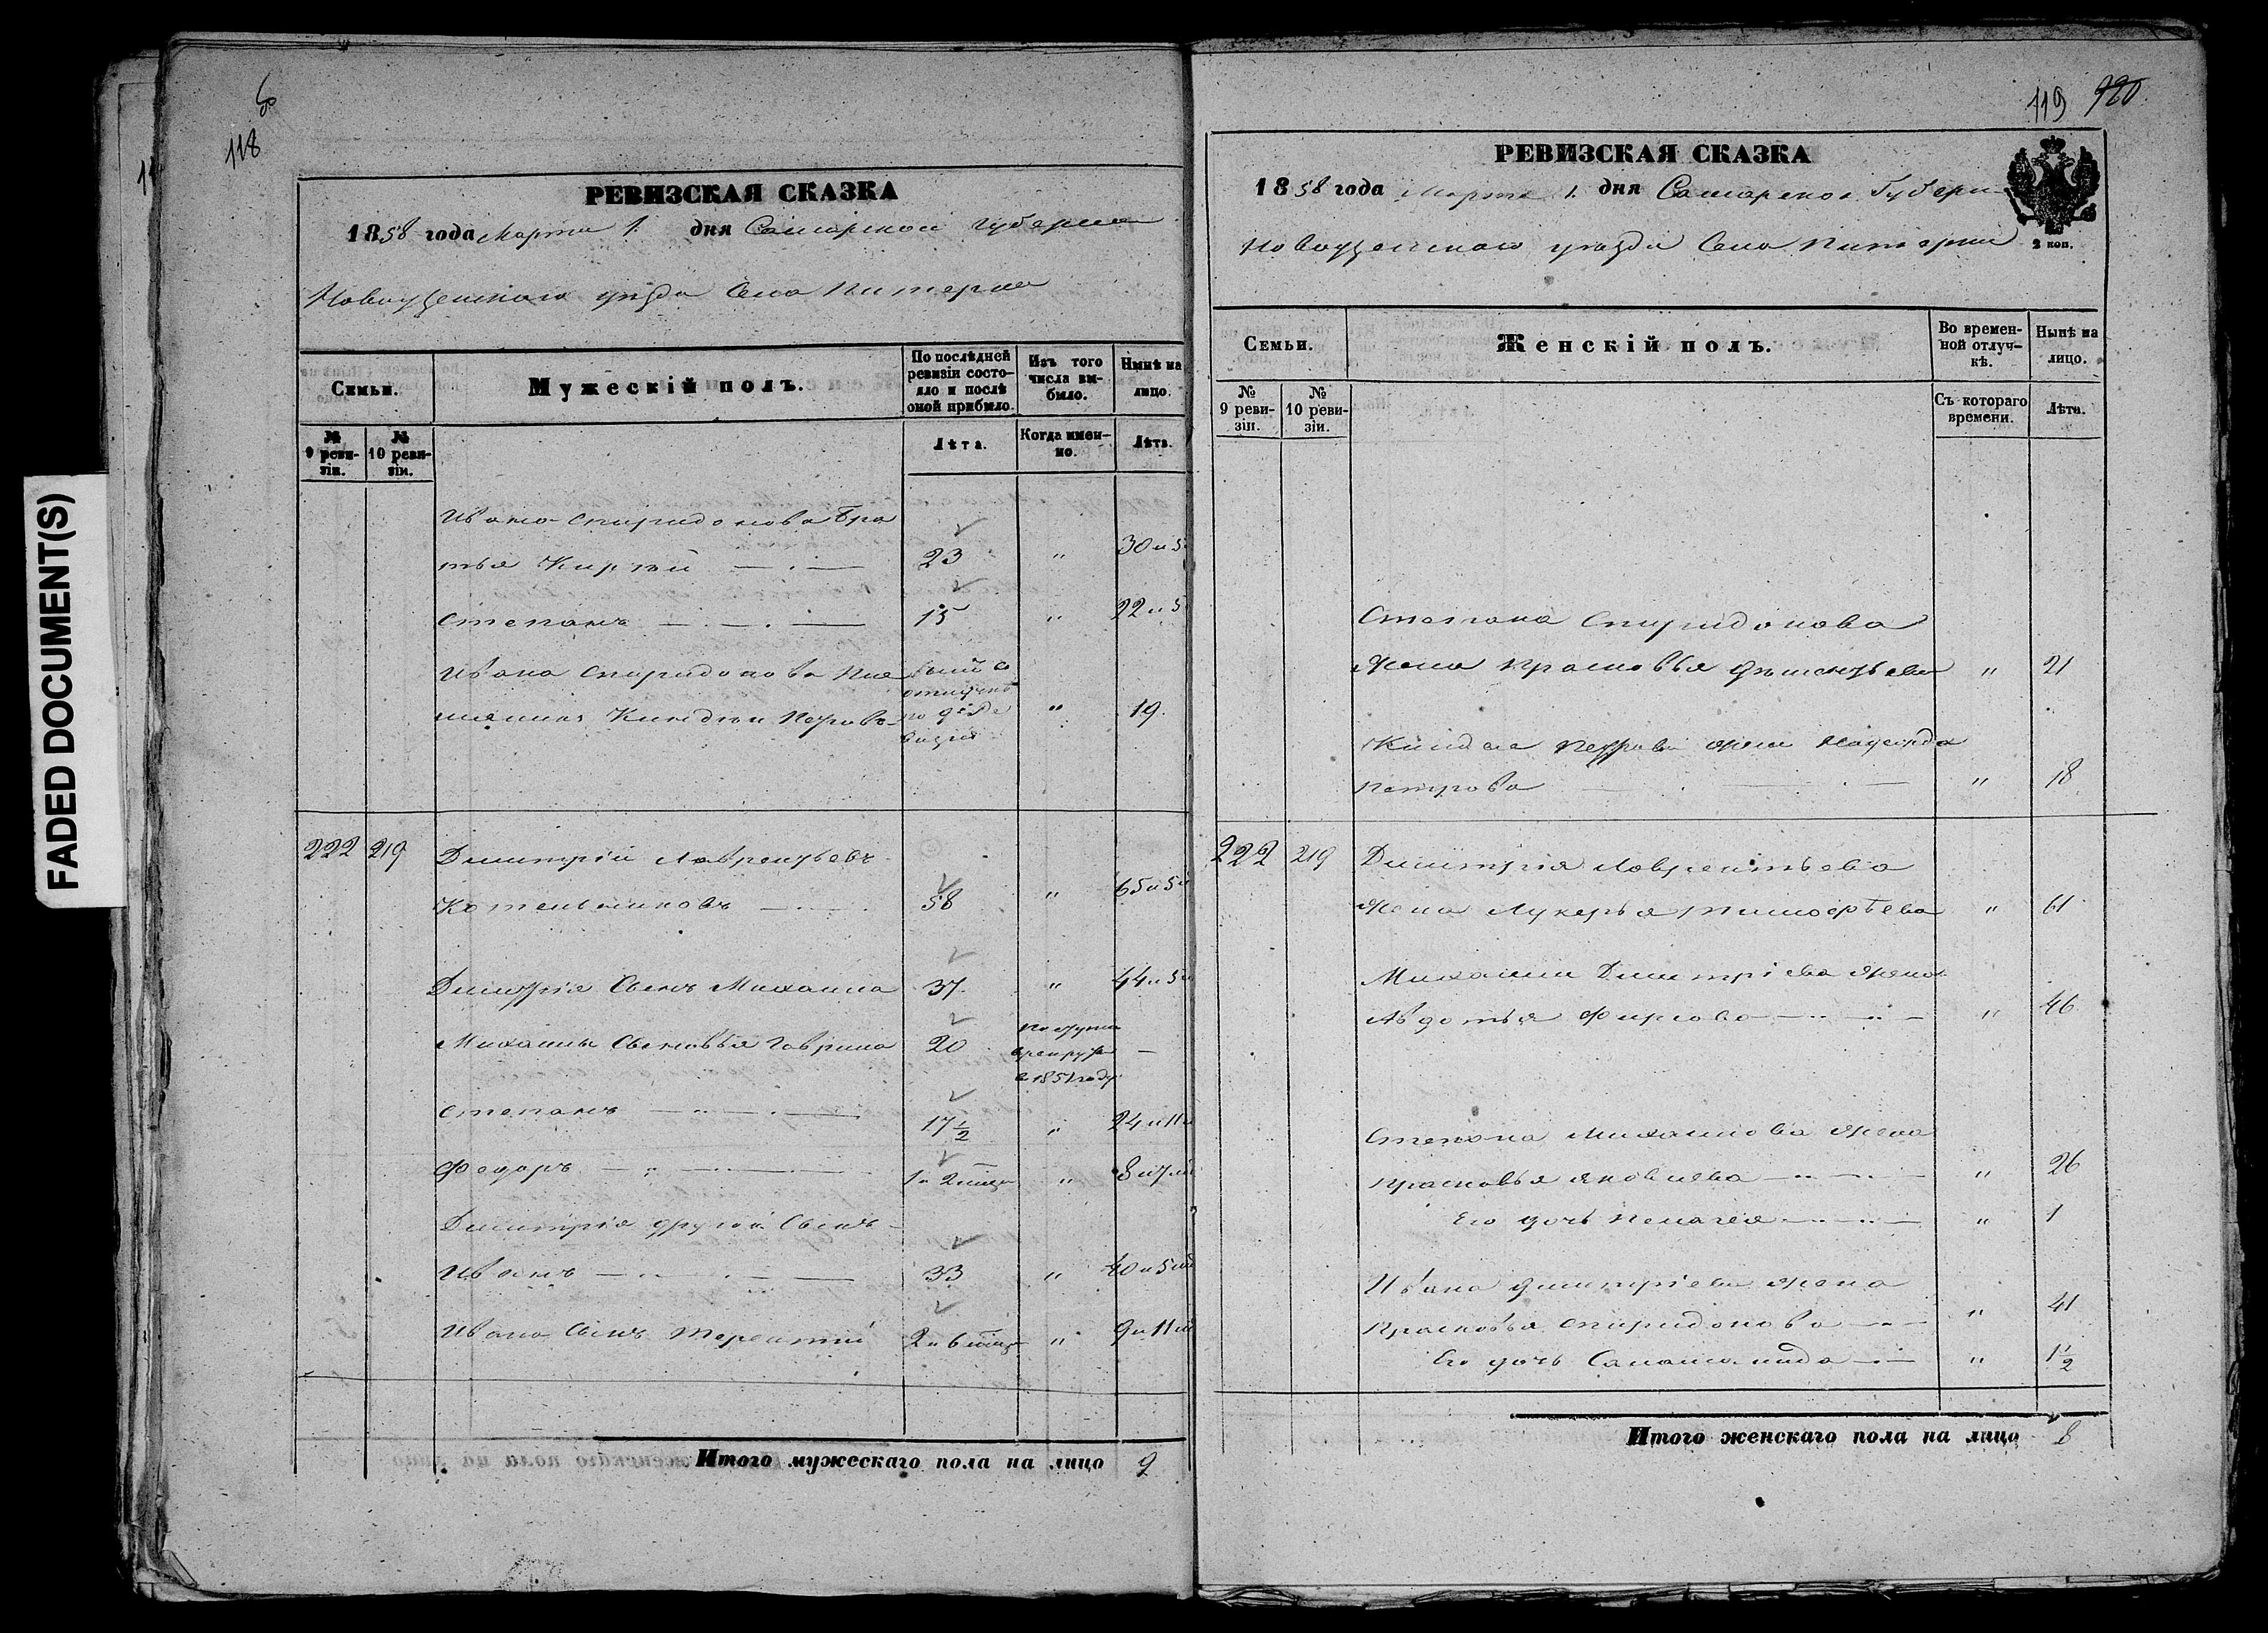 118
РЕВИЗСКАЯ СКАЗКА
1858 года Марта 1. дня Самарской Губернии
Новоузенского уезда Села Питерки
Семьи.
Мужескій полъ.
По послѣдней ревизіи состояло и послѣ оной прибыло.
Изъ того числа выбыло.
Нынѣ на лицо.
№ 9 ревизіи.
№ 10 ревизіи.
Лѣта.
Когда именно.
Лѣта.
Ивана Спиридонова бра
тья 23 " 30 и 5
Степанъ 15 " 22 и 5
Ивана Спиридонова пле
19
222 219 Димитрій Лаврентьевъ
Котельниковъ 58 " 65 и 5
Димитрія Сынъ Михаила 37 " 44 и 5
Михаилы Сыновья Гаврила 20
в 1851 году
Степанъ 17½ " 24 и 11
Федоръ 1 и 2 " 8 и 7
Димитрія другой Сынъ
Иванъ 33 " 40 и 5
Ивана Сынъ Терентий 2 и 6 " 9 и 11
Итого мужескаго пола на лицо 9
119 120
РЕВИЗСКАЯ СКАЗКА
1858 года Марта 1. дня Самарской Губерн
Новоузенского уезда Села Питерки
2 коп.
Семьи.
Женскій полъ.
Во временной отлучкѣ.
Нынѣ на лицо.
№ 9 ревизіи.
№ 10 ревизіи.
Съ котораго времени.
Лѣта.
Степана Спиридонова
жена Прасковья " 21
жена
Петрова " 18
222 219 Димитрія Лаврентьева
жена Лукерья Тимофѣева " 61
Михаилы Димитріева жена
Авдотья Фирсова " 46
Степана Михайлова жена
Прасковья Яковлева " 26
Его дочь Пелагея " 1
Ивана Димитріева жена
Прасковья Спиридонова " 41
Его дочь " 1½
Итого женскаго пола на лицо 8
FADED DOCUMENT(S)